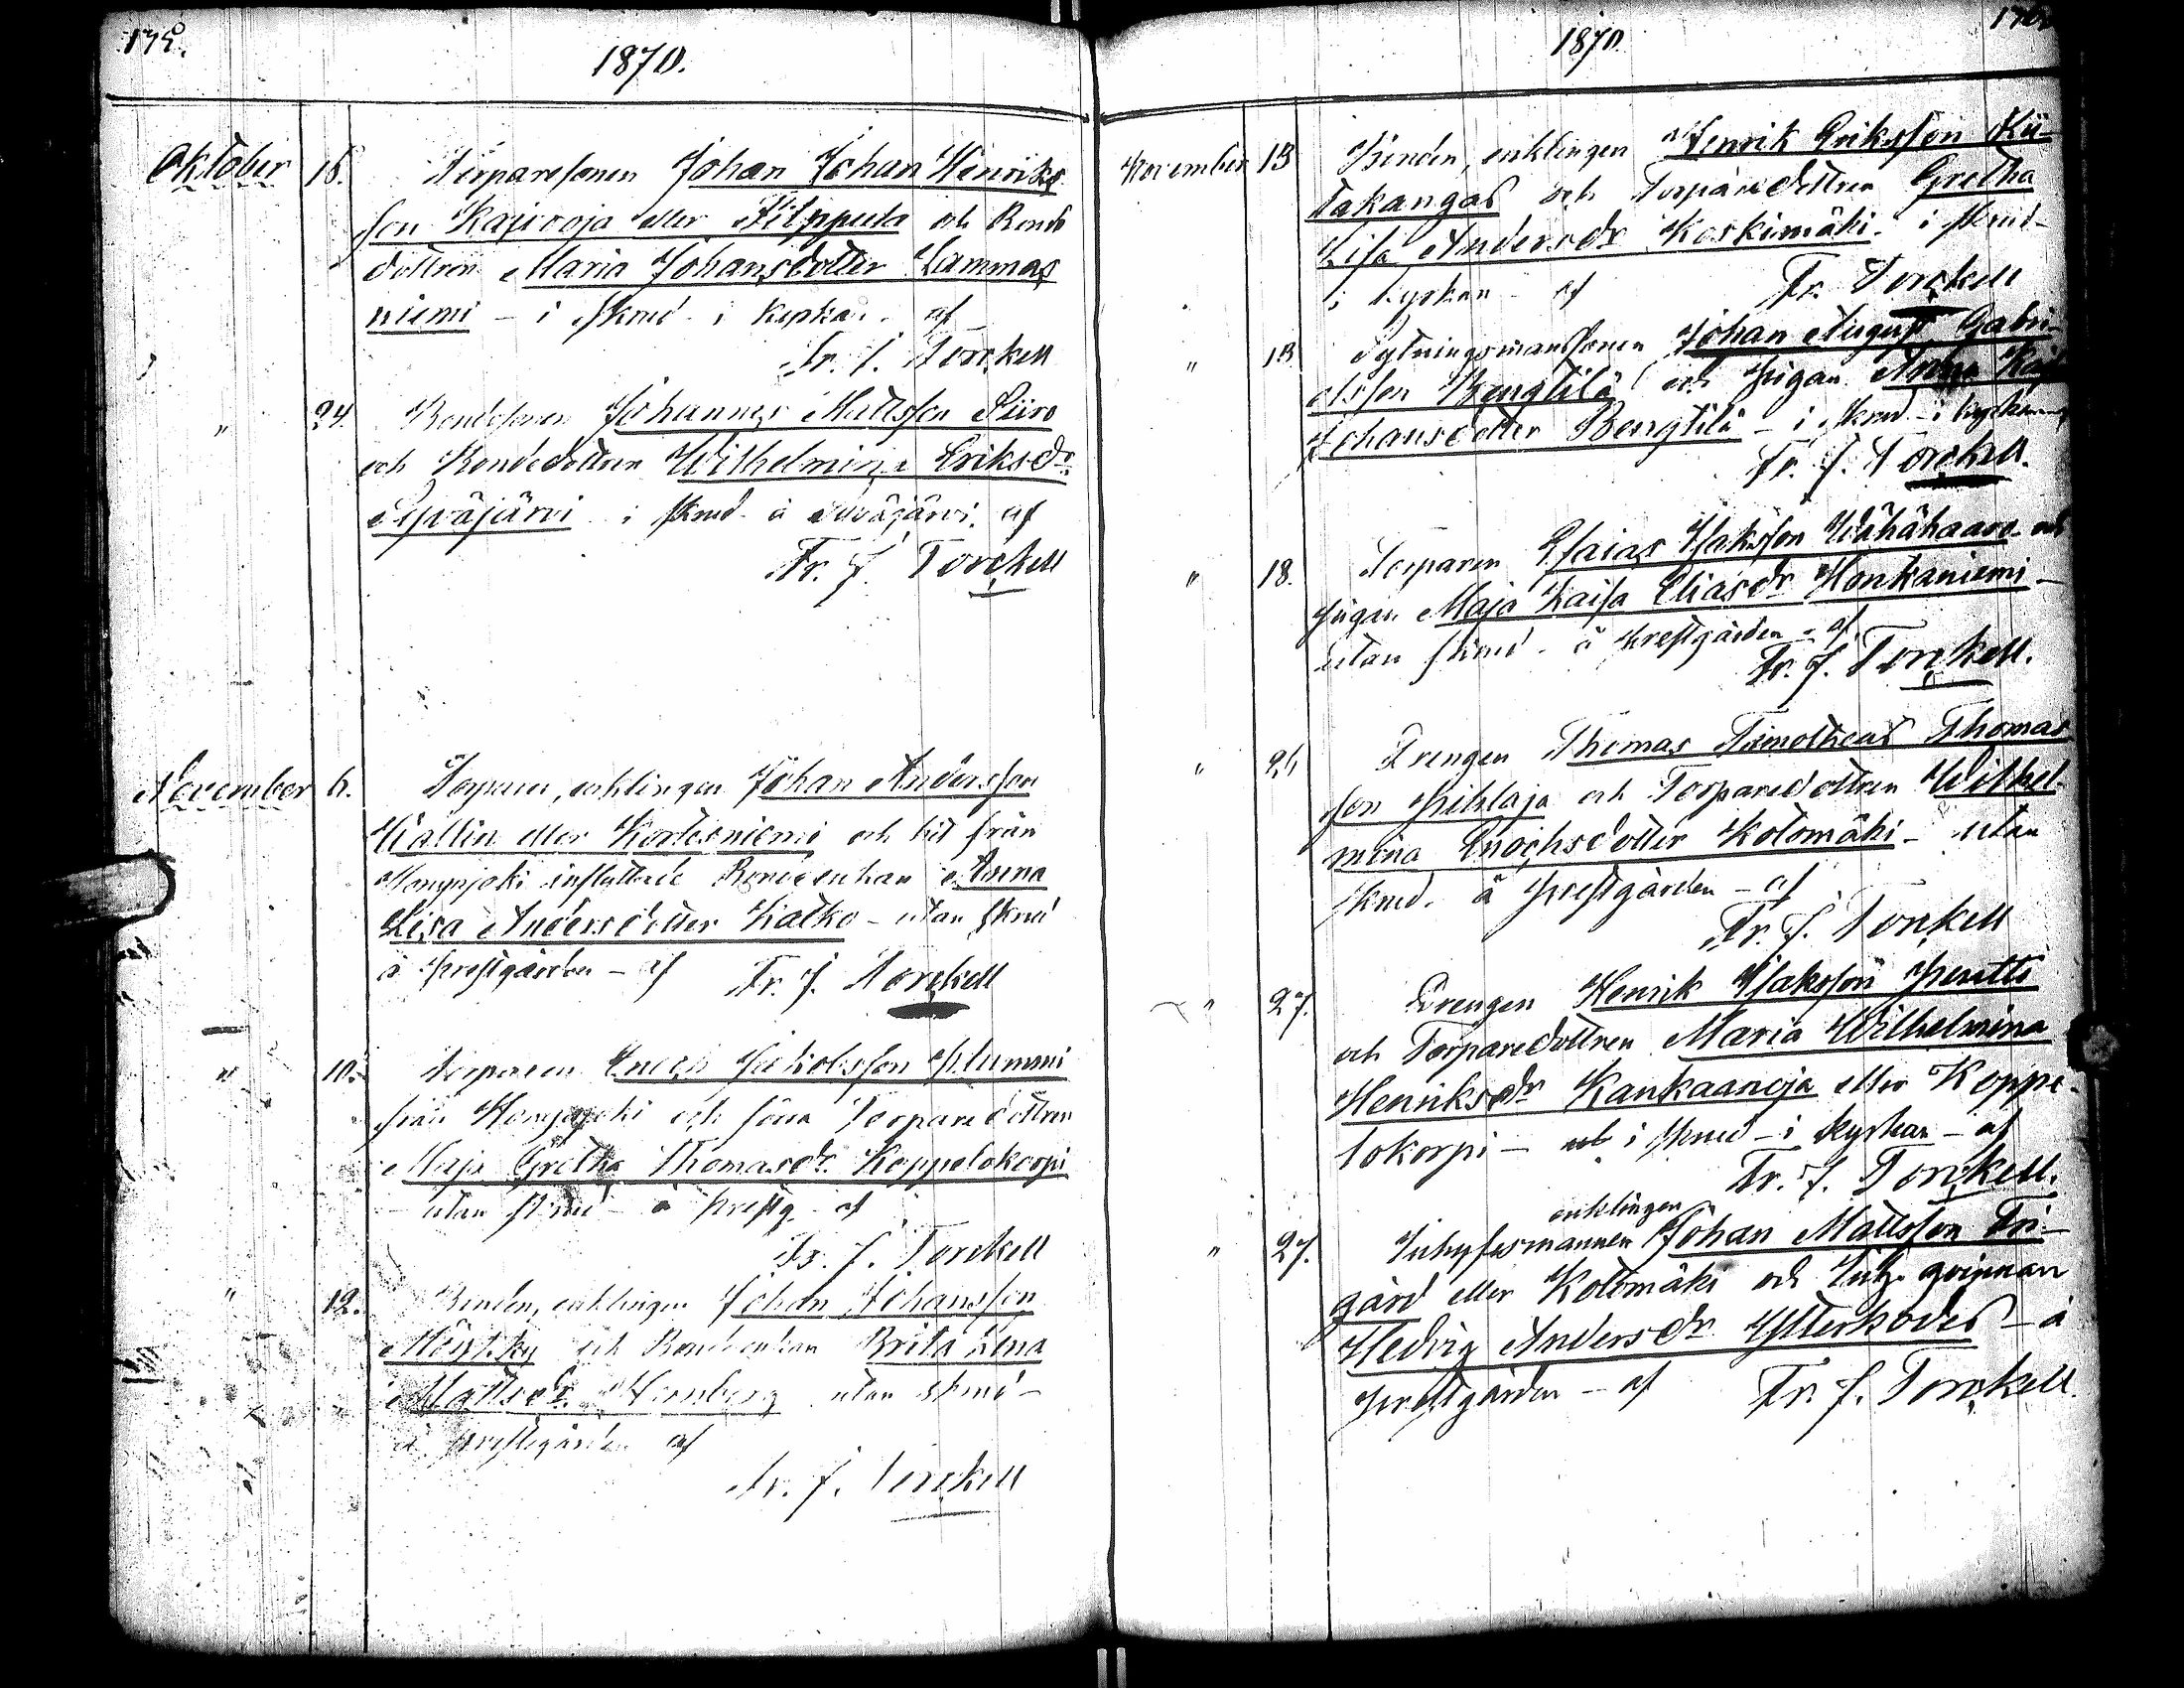 175.
1870.
Oktober 16. Torparesonen Johan Johan Henriks
son Kaivooja eller Filppula och Bonde
dottren Maria Johansdotter Lammas
niemi - i skrud - i kyrkan. af
Fr. J. Torckell
" 24. Bondesonen Johannes Mattsson Siiro
och Bondedottren Wilhelmina Eriksdr.
Syväjärvi i skrud - å Syväjärvi. af
Fr. J. Torckell
November 6. Torparen, enklingen Johan Andersson
Wallin eller Kortesniemi och hit från
inflyttade Bondeenkan Anna
Lisa Andersdotter Katko - utan skrud
å prestgården - af Fr. J. Torckell
" 10. Torparen Enoch Jakobsson
från och Torparedottren
Maja Gretha Thomasdr. Koppelokorpi
- utan skrud - å prestg. af
Fr. J. Torckell
" 12. Bonden, enklingen Johan Johansson
och Bondeenkan Brita Lena
Mattsdr. utan skrud -
å prestgården af
Fr. J. Torckell
1870
November 13 Bonden, enklingen Henrik Eriksson Kii-
takangas och Torparedottren Gretha
Lisa Andersdr Koskimäki - i skrud -
i kyrkan - af Fr. Torckell
" 13 Sytningsmanssonen Johan August Gabri-
elsson Bengtilä och pigan Anna
Johansdotter Bengtilä - i skrud - i kyrkan
Fr. J. Torckell.
" 18. Torparen Esaias Isaksson Wähähaavo och
pigan Maja Kaisa Eliasdr Honkaniemi -
utan skrud - å prestgården - af
Fr. J. Torckell.
" Drengen Thomas Timotheus Thomas
son Pihlaja och Torparedottren Wilhel-
mina Enochsdotter Kotomäki - utan
skrud. å prestgården - af
Fr. J. Torckell
" 27. Drengen Henrik Isaksson Peratti
och Torparedottren Maria Wilhelmina
Henriksdr Kankaanoja eller Koppe-
lokorpi - i skrud - i kyrkan - af
Fr. J. Torckell.
enklingen
" 27. Inhysesmannen Johan Mattsson Fri-
gård eller Kotomäki och Inh. qvinnan
Hedvig Andersdr. - å
prestgården - af Fr. J. Torckell